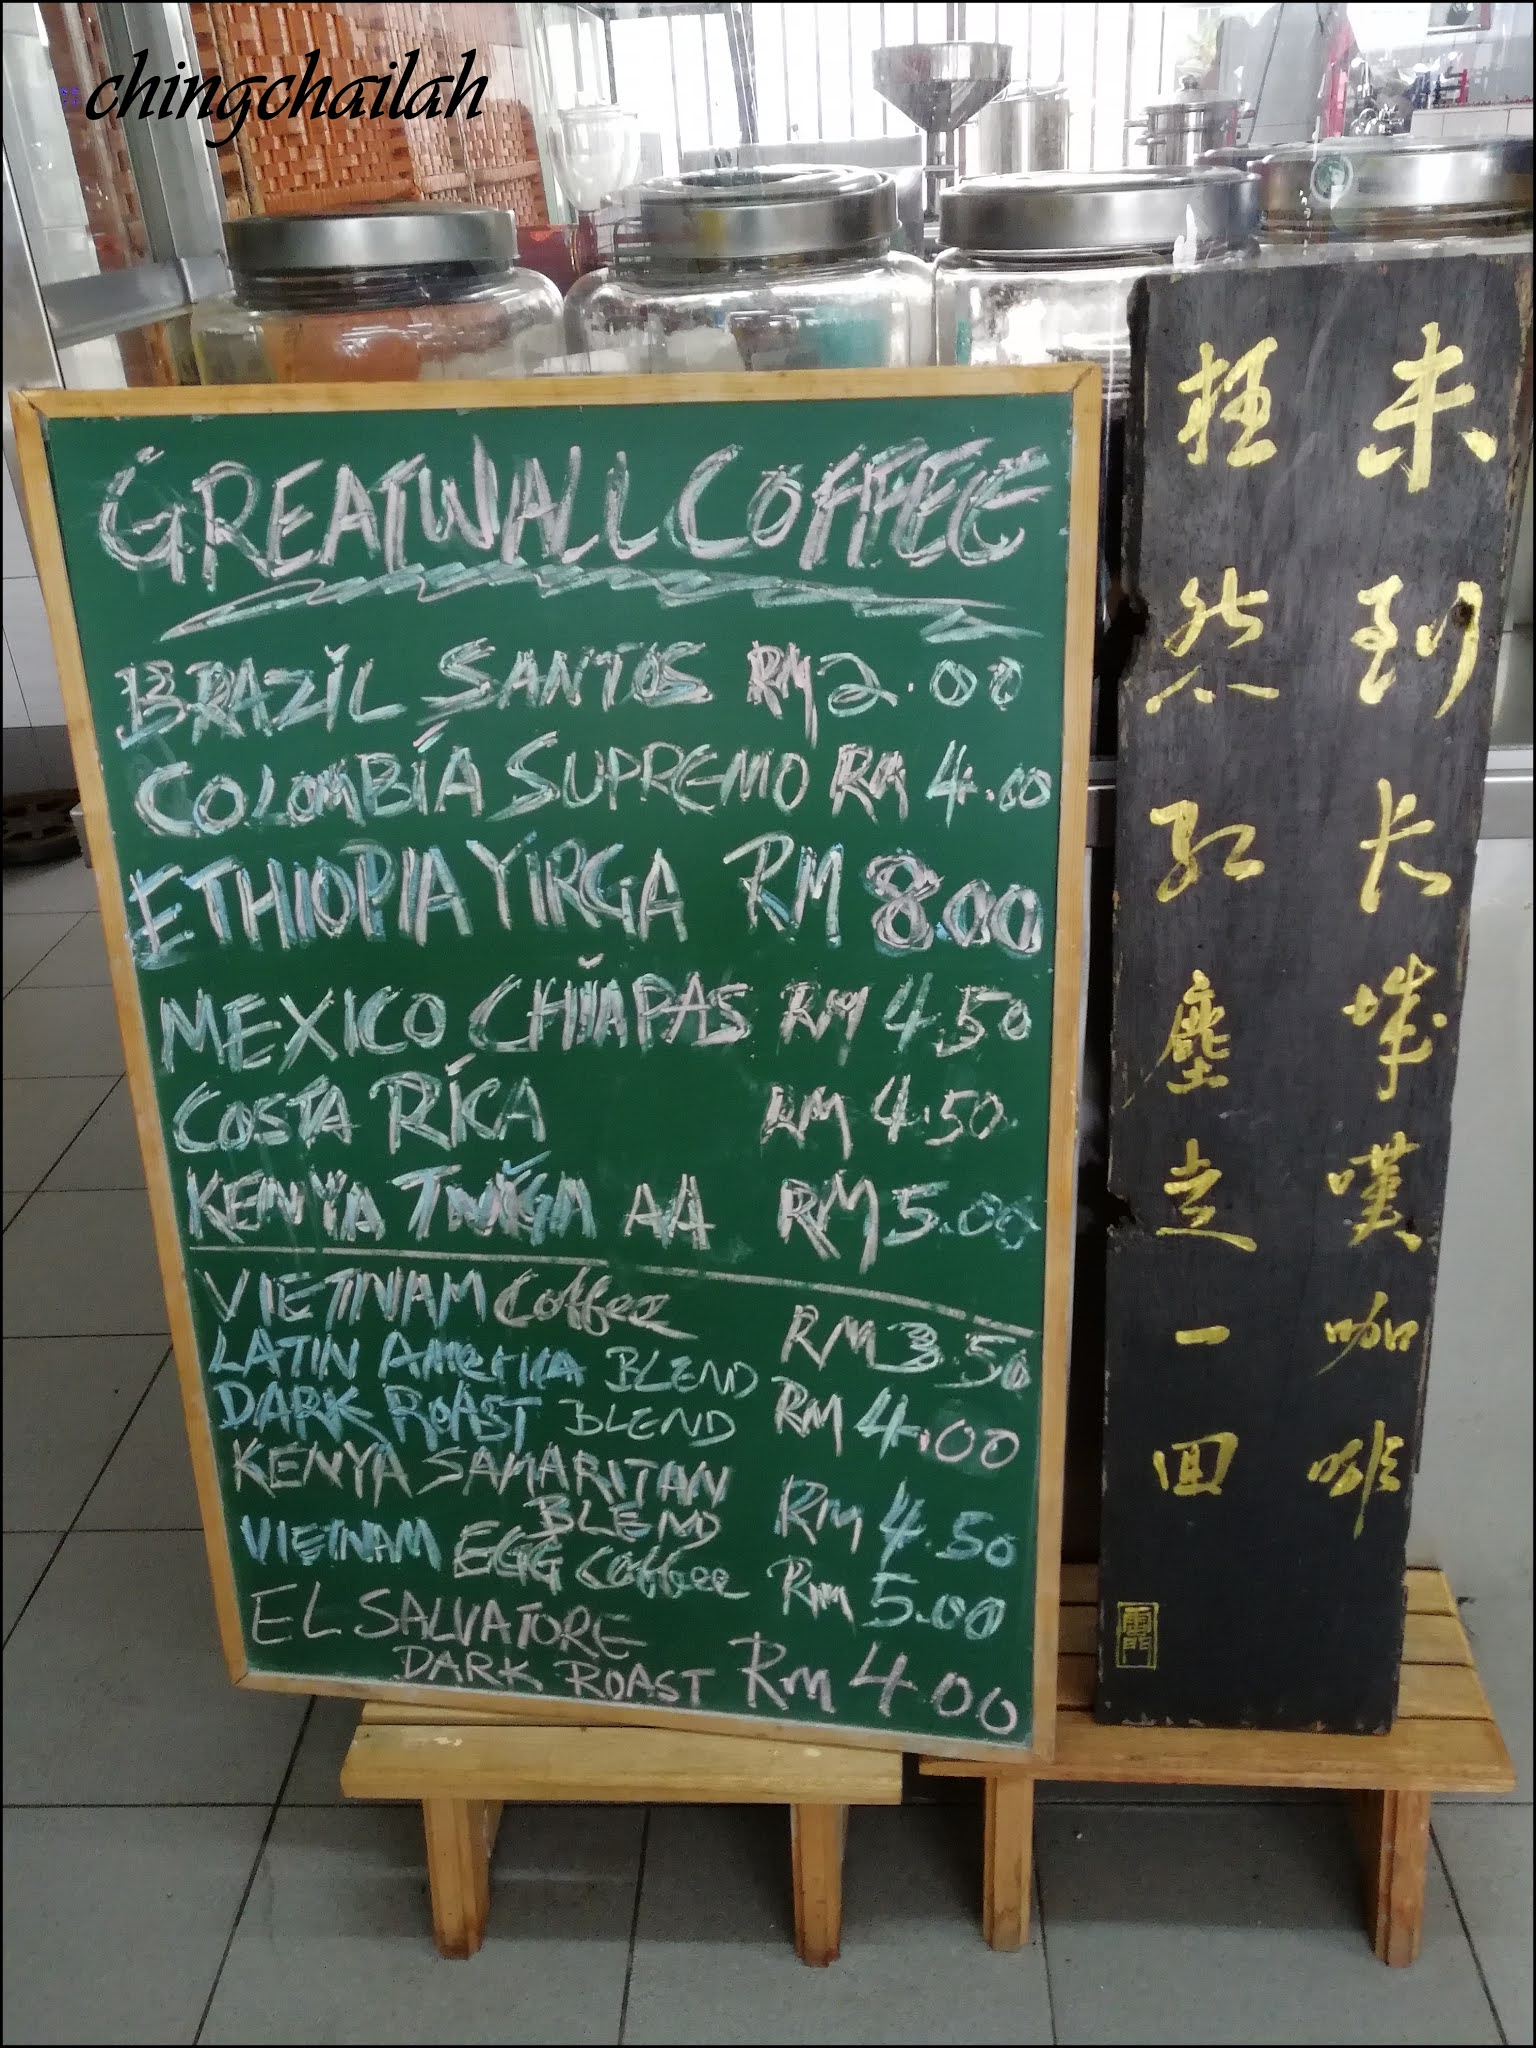 chingchailah
GREATWALL COFFEE
BRAZIL SANTOS RM 2.00
COLOMBIA SUPREMO RM 4.00
ETHIOPIA YIRGA RM 8.00
MEXICO CHIAPAS RM 4.50
COSTA RICA RM 4.50
KENYA AA RM 5.00
VIETNAM Coffee RM 3.50
LATIN America BLEND
DARK ROAST BLEND RM 4.00
KENYA SAMARITAN
BLEND RM 4.50
VIETNAM EGG Coffee RM 5.00
EL SALVATORE
DARK ROAST Rm 4.00
未到長城嘆咖啡
枉然紅塵走一回